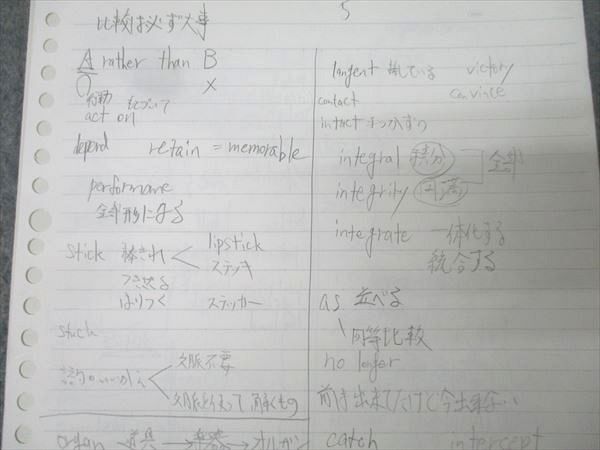 比較は必ず大事
5
A rather than B
○ ×
行動 もとづいて
act on
depend retain = memorable
performane
全部形にする
stick 棒きれ lipstick
ステッキ
つき出る
はりつく ステッカー
stuck
語のいいかえ 文脈不要
文脈を使って解くもの
organ 道具 → 楽器 → オルガン
tangent 接している victory
contact convince
intact 手つかずの
integral 積分
全部
integrity
integrate 一体化する
統合する
as 並べる
同等比較
no longer
前は出来てたけど今出来ない
catch intercept